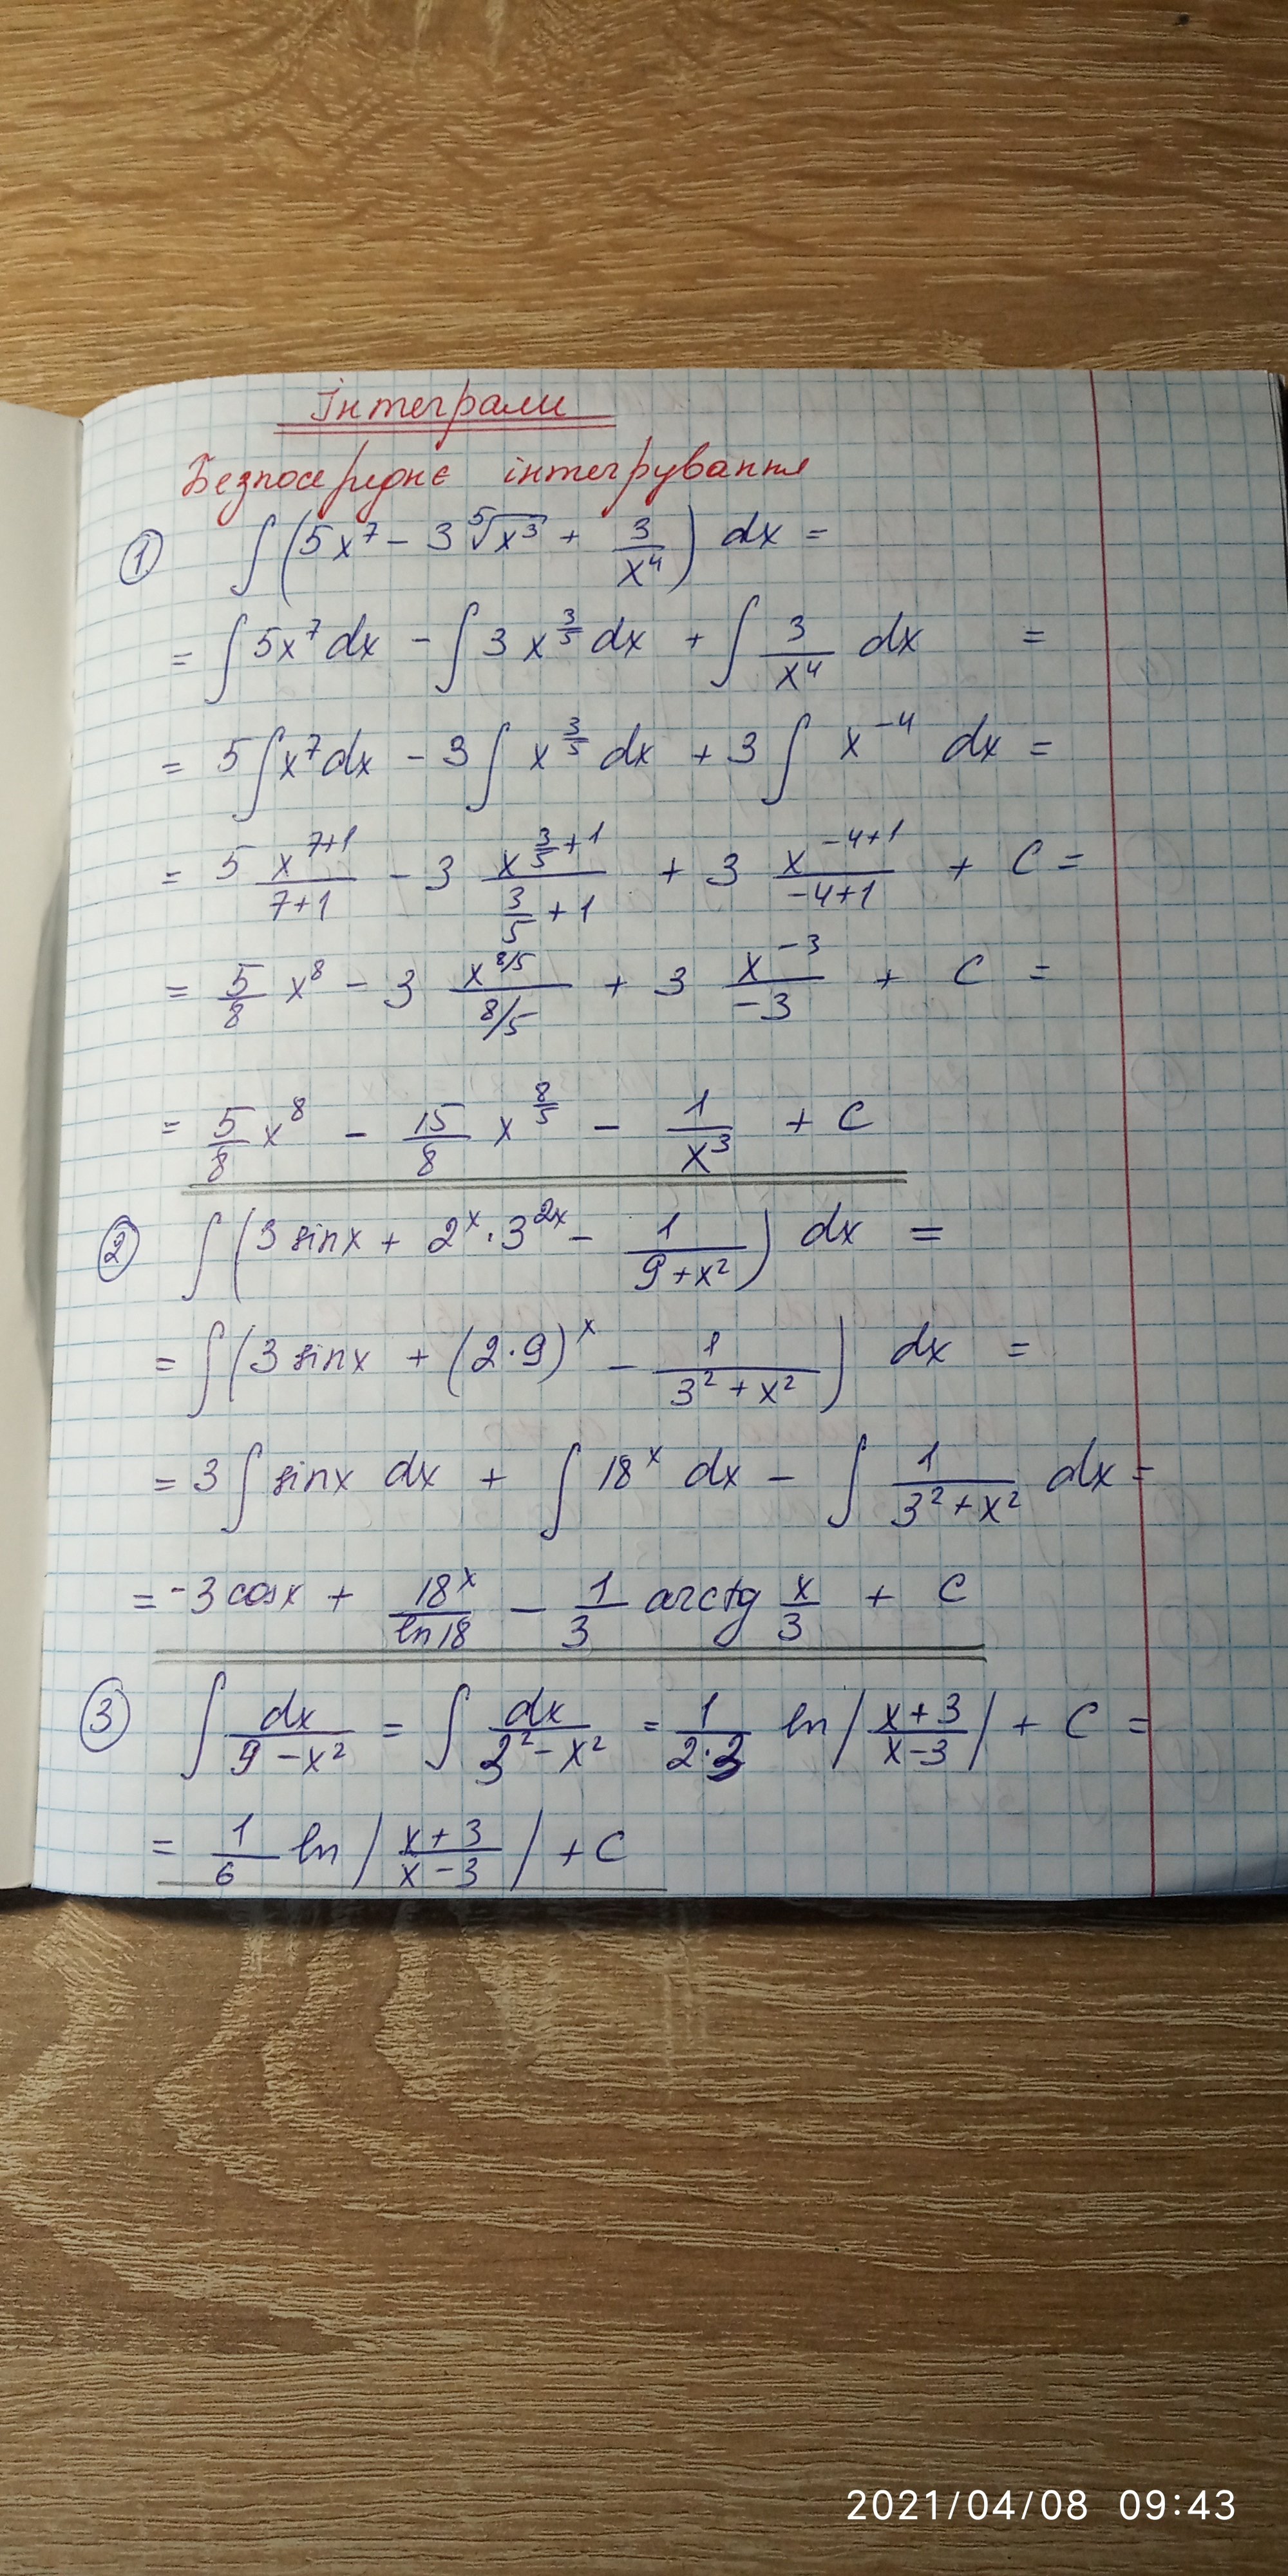 Інтеграли
Безпосереднє інтегрування
① ∫(5x⁷ − 3⁵√x³ + 3/x⁴) dx =
= ∫5x⁷dx − ∫3x^(3/5)dx + ∫3/x⁴ dx =
= 5∫x⁷dx − 3∫x^(3/5) dx + 3∫x⁻⁴ dx =
= 5 x^(7+1)/(7+1) − 3 x^(3/5+1)/(3/5+1) + 3 x^(−4+1)/(−4+1) + C =
= 5/8 x⁸ − 3 x^(8/5)/(8/5) + 3 x⁻³/(−3) + C =
= 5/8 x⁸ − 15/8 x^(8/5) − 1/x³ + C
② ∫(3 sinx + 2^x·3^(2x) − 1/(9+x²)) dx =
= ∫(3 sinx + (2·9)^x − 1/(3²+x²)) dx =
= 3∫sinx dx + ∫18^x dx − ∫1/(3²+x²) dx =
= −3cosx + 18^x/ln18 − 1/3 arctg x/3 + C
③ ∫dx/(9−x²) = ∫dx/(3²−x²) = 1/(2·3) ln|(x+3)/(x−3)| + C =
= 1/6 ln|(x+3)/(x−3)| + C
2021/04/08 09:43